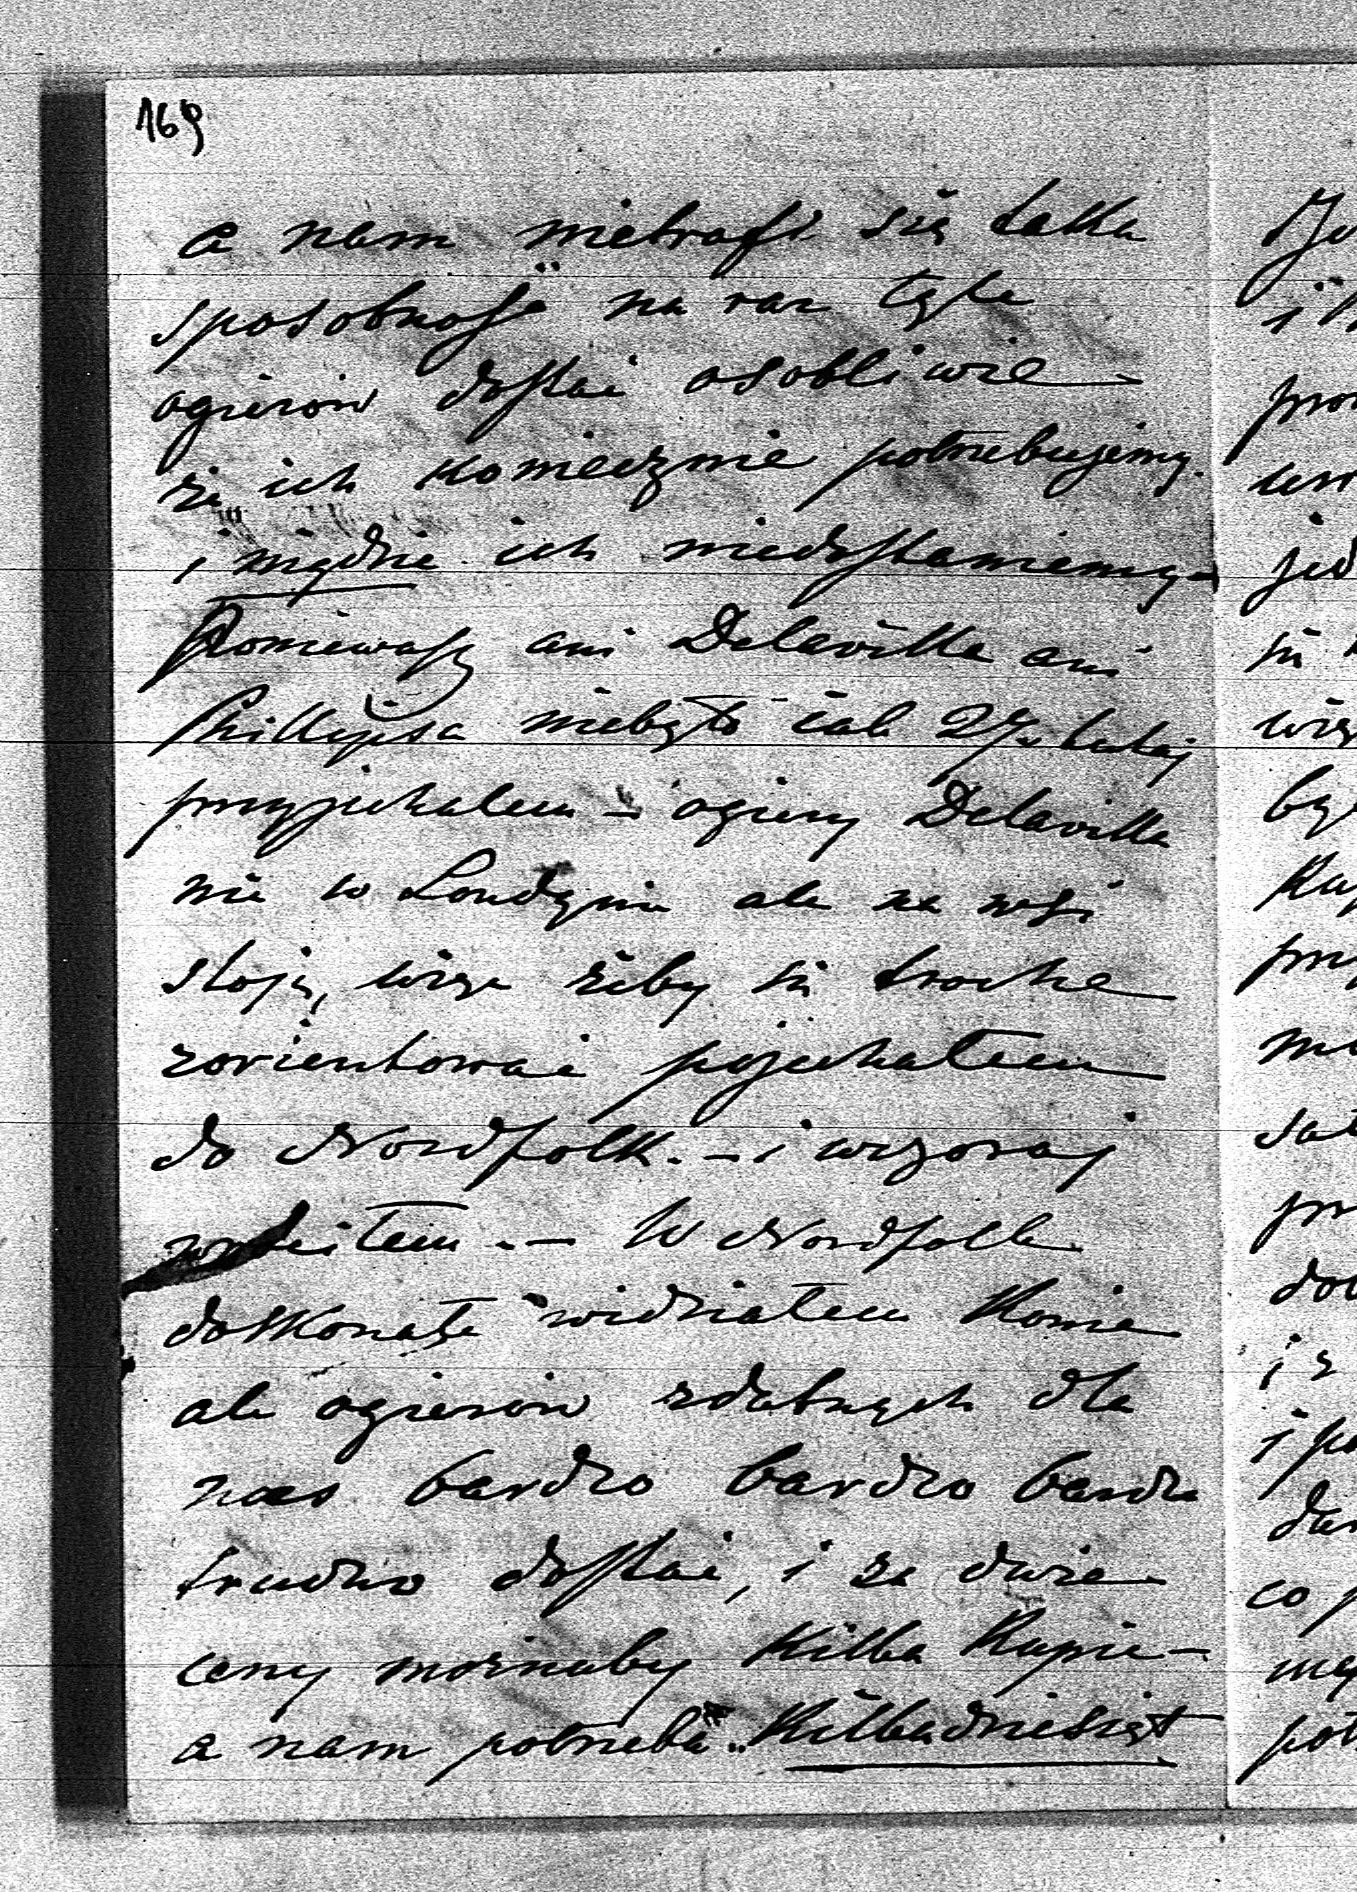 169
a nam nietrafi się taka
sposobność na raz tyle
ogierow dostać osobliwie
że ich koniecznie potrzebujemy
i nigdzie ich niedostaniemy –
Ponieważ ani Delavilla ani
Phillipsa niebyło jak tutaj
przyjechałem – ogiery Delavilla
nie w Londynie ale na wsi
stoją, więc żeby się trochę
zorientować pojechałem
do Nordfolk. – i wczoraj
wróciłem. – W Nordfolk
doskonałe widziałem Konie
ale ogierow zdatnych dla
nas bardzo bardzo bardzo
trudno dostać, i za duże
ceny możnaby Kilka Kupić –
a nam potrzeba Kilkadziesiąt